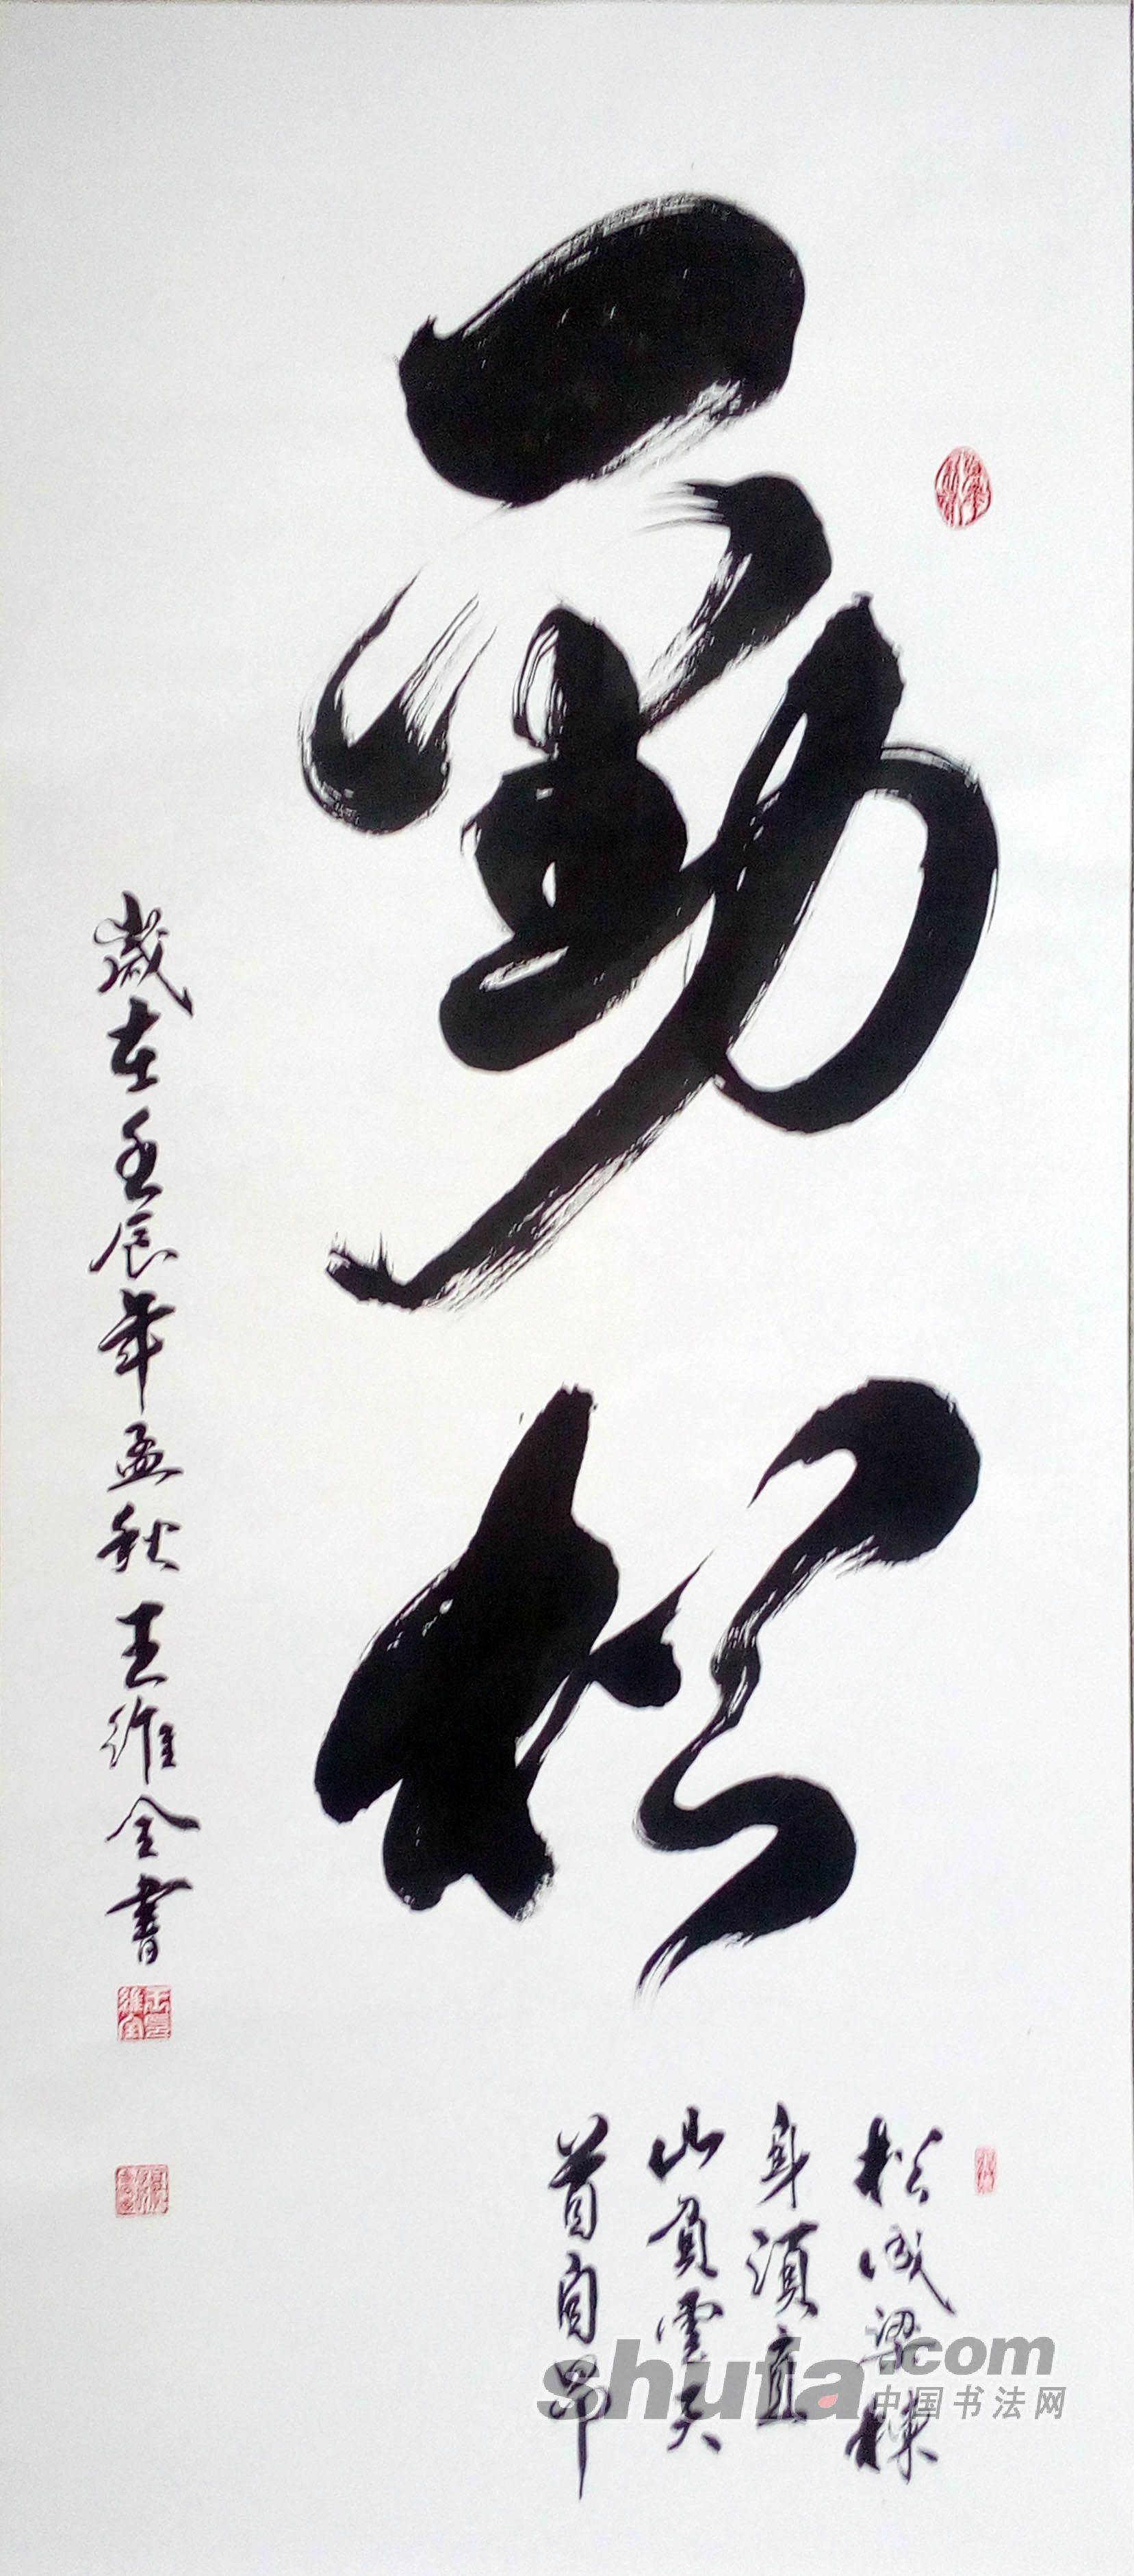 勁松
松成梁棟
身須直
山負雲天
首自昂
歲在壬辰年孟秋王維全書
shufa.com
中国书法网